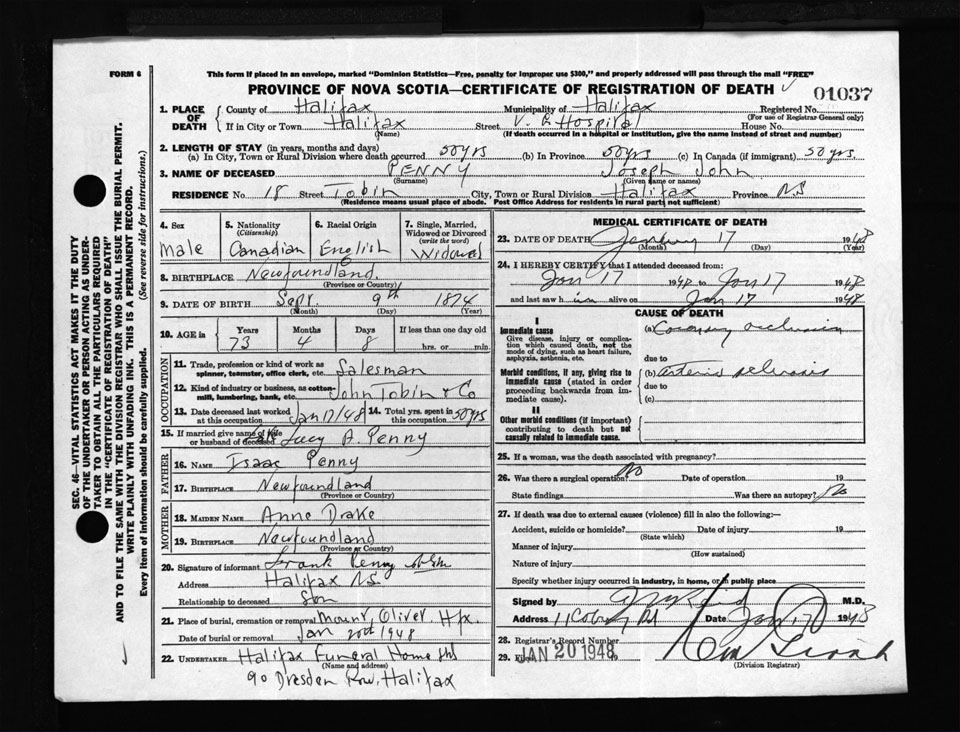 FORM 6
This form if placed in an envelope, marked "Dominion Statistics—Free, penalty for improper use $300," and properly addressed will pass through the mail "FREE"
PROVINCE OF NOVA SCOTIA—CERTIFICATE OF REGISTRATION OF DEATH
01037
1. PLACE OF DEATH { County of Halifax Municipality of Halifax Registered No.
(For use of Registrar General only)
If in City or Town Halifax Street V. G. Hospital House No.
(Name) (If death occurred in a hospital or institution, give the name instead of street and number)
2. LENGTH OF STAY (in years, months and days)
(a) In City, Town or Rural Division where death occurred 50yrs (b) In Province 50yrs (c) In Canada (if immigrant) 50 yrs.
3. NAME OF DECEASED PENNY Joseph John
(Surname) (Given name or names)
RESIDENCE No. 18 Street Tobin City, Town or Rural Division Halifax Province NS
(Residence means usual place of abode. Post Office Address for residents in rural parts not sufficient)
4. Sex Male
5. Nationality (Citizenship) Canadian
6. Racial Origin English
7. Single, Married, Widowed or Divorced (write the word) Widowed
8. BIRTHPLACE Newfoundland.
(Province or Country)
9. DATE OF BIRTH Sept. 9th 1874
(Month) (Day) (Year)
10. AGE in { Years 73 Months 4 Days 8 If less than one day old hrs. or min.
OCCUPATION
11. Trade, profession or kind of work as spinner, teamster, office clerk, etc. Salesman
12. Kind of industry or business, as cotton-mill, lumbering, bank, etc. John Tobin & Co
13. Date deceased last worked at this occupation Jan 17/48 14. Total yrs. spent in this occupation 50yrs
15. If married give name of wife or husband of deceased Lucy A. Penny
FATHER
16. NAME Isaac Penny
17. BIRTHPLACE Newfoundland
(Province or Country)
MOTHER
18. MAIDEN NAME Anne Drake
19. BIRTHPLACE Newfoundland
(Province or Country)
20. Signature of informant Frank Penny
Address Halifax N.S.
Relationship to deceased Son
21. Place of burial, cremation or removal Mount Olivet Hfx.
Date of burial or removal Jan 20th 1948
22. UNDERTAKER Halifax Funeral Home
(Name and address)
90 Dresden Row, Halifax
MEDICAL CERTIFICATE OF DEATH
23. DATE OF DEATH January 17 1948
(Month) (Day) (Year)
24. I HEREBY CERTIFY that I attended deceased from:
Jan 17 1948 to Jan 17 1948
and last saw him alive on Jan 17 1948
CAUSE OF DEATH
I
Immediate cause
Give disease, injury or complication which caused death, not the mode of dying, such as heart failure, asphyxia, asthenia, etc.
(a) Coronary occlusion
due to
Morbid conditions, if any, giving rise to immediate cause (stated in order proceeding backwards from immediate cause).
(b) arterio sclerosis
due to
(c)
II
Other morbid conditions (if important) contributing to death but not causally related to immediate cause.
25. If a woman, was the death associated with pregnancy?
26. Was there a surgical operation? No Date of operation 19
State findings Was there an autopsy? No
27. If death was due to external causes (violence) fill in also the following:—
Accident, suicide or homicide? Date of injury 19
(State which)
Manner of injury
(How sustained)
Nature of injury
Specify whether injury occurred in industry, in home, or in public place
Signed by M.D.
Address 11 Coburg Rd Date Jan 17 1948
28. Registrar's Record Number
29. Filed JAN 20 1948 19
(Division Registrar)
SEC. 46—VITAL STATISTICS ACT MAKES IT THE DUTY OF THE UNDERTAKER OR PERSON ACTING AS UNDERTAKER TO OBTAIN ALL THE PARTICULARS REQUIRED IN THE "CERTIFICATE OF REGISTRATION OF DEATH" AND TO FILE THE SAME WITH THE DIVISION REGISTRAR WHO SHALL ISSUE THE BURIAL PERMIT.
WRITE PLAINLY WITH UNFADING INK. THIS IS A PERMANENT RECORD.
Every item of information should be carefully supplied. (See reverse side for instructions.)